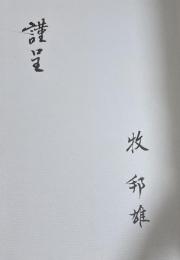 謹呈
牧邦雄